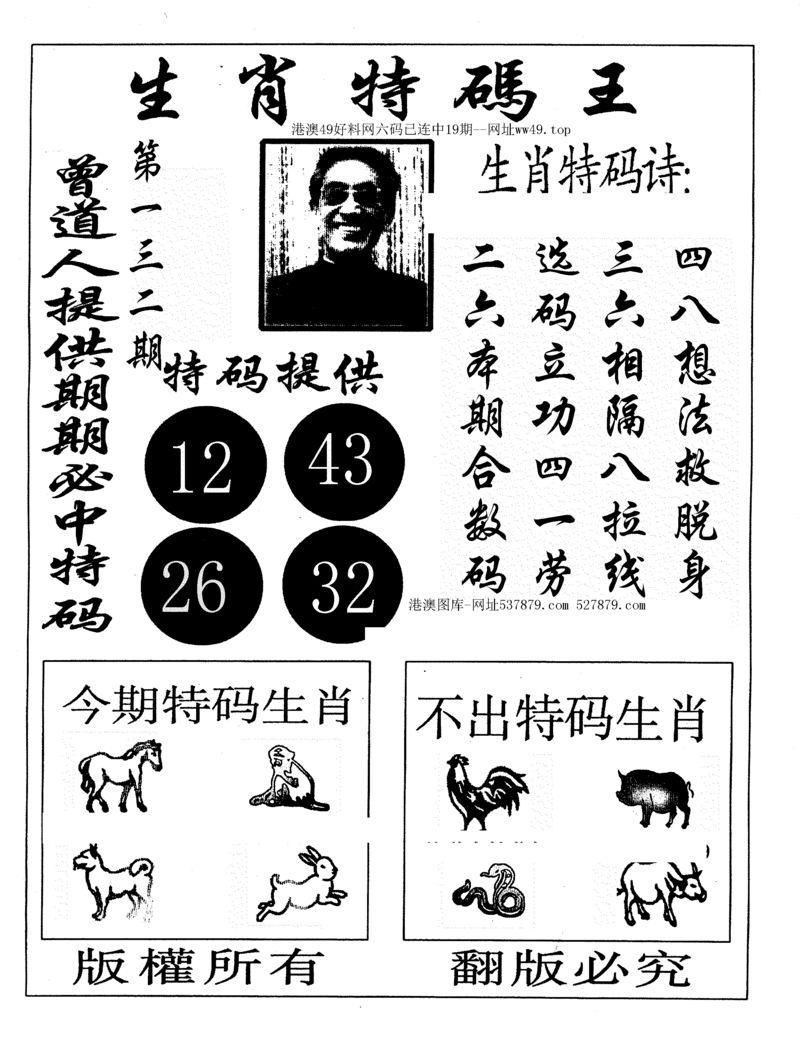 生肖特碼王
港澳49好料网六码已连中19期--网址ww49.top
第一三二期
曾道人提供期期必中特码
生肖特码诗:
四八想法救脱身
三六相隔八拉线
选码立功四一劳
二六本期合数码
特码提供
12
43
26
32
港澳图库-网址537879.com 527879.com
今期特码生肖
不出特码生肖
版權所有
翻版必究